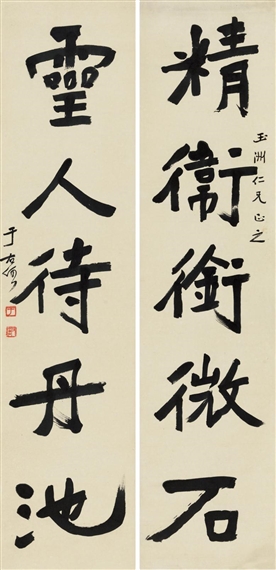 精衞銜微石
玉洲仁兄正之
靈人待丹池
于右任